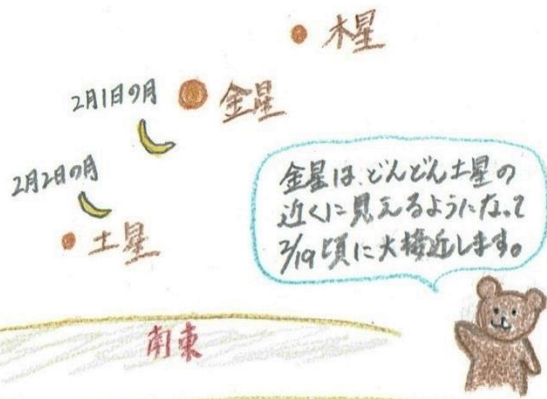 木星
2月1日の月
金星
2月2日の月
土星
金星は、どんどん土星の
近くに見えるようになって
2/19頃に大接近します。
南東